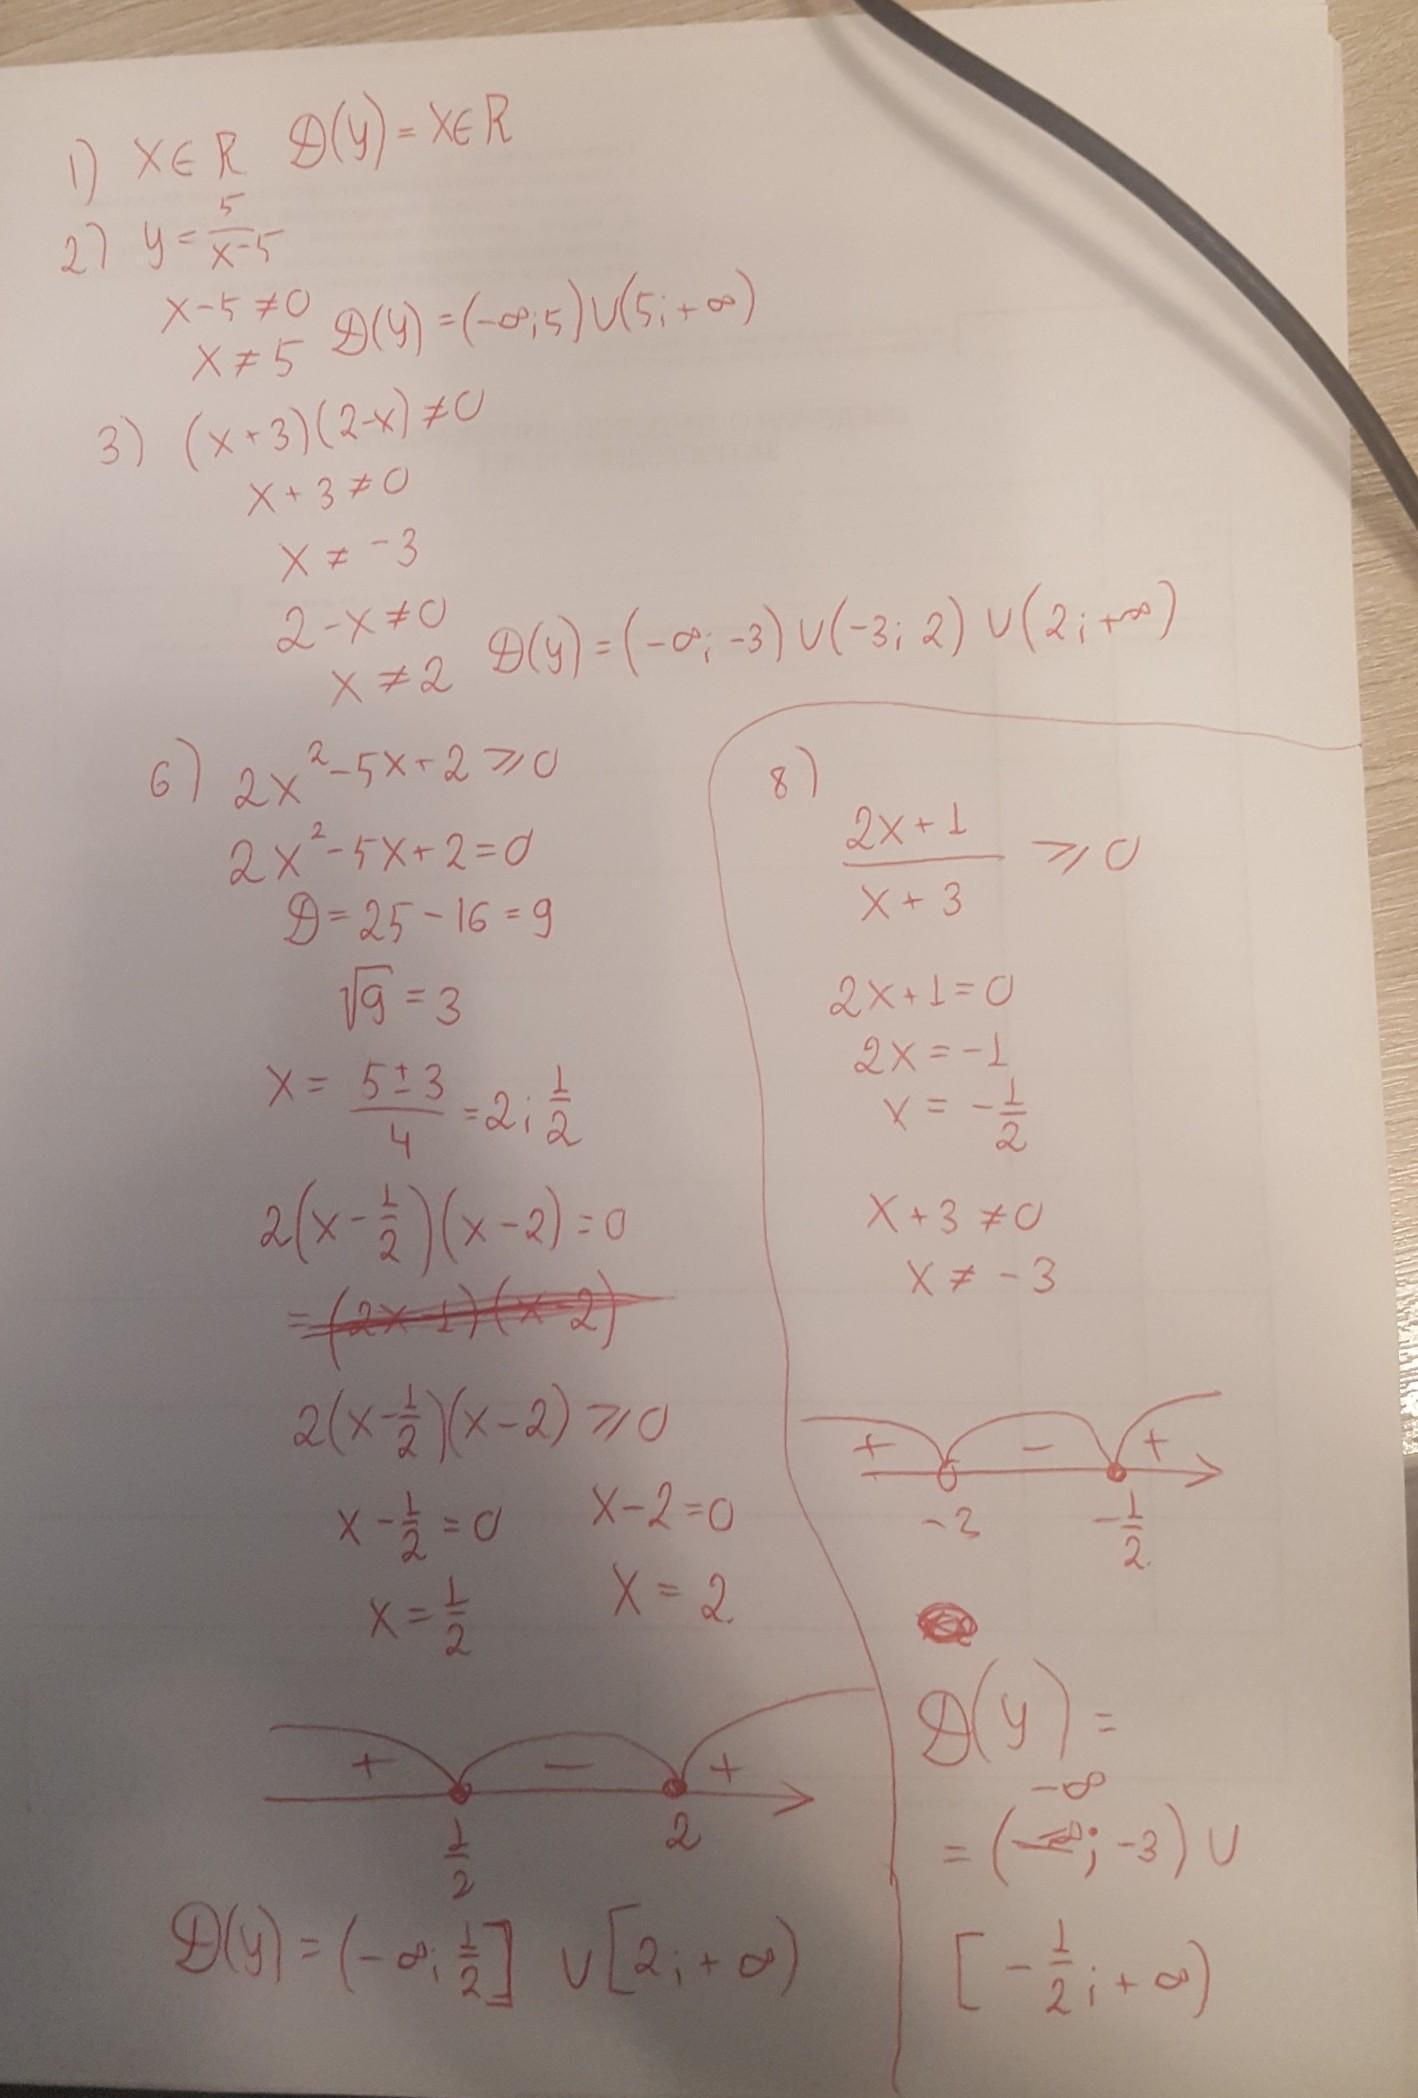 1) X∈R D(y) = X∈R
2) y = 5/(x-5)
x-5≠0
x≠5 D(y) = (-∞;5)∪(5;+∞)
3) (x+3)(2-x)≠0
x+3≠0
x≠-3
2-x≠0
x≠2 D(y) = (-∞;-3)∪(-3;2)∪(2;+∞)
6) 2x²-5x+2⩾0
2x²-5x+2=0
D=25-16=9
√9=3
x = (5±3)/4 = 2; 1/2
2(x-1/2)(x-2)=0
=(2x-1)(x-2)
2(x-1/2)(x-2)⩾0
x-1/2=0 x-2=0
x=1/2 x=2
+ - +
1/2 2
D(y) = (-∞;1/2] ∪ [2;+∞)
8)
(2x+1)/(x+3) ⩾0
2x+1=0
2x=-1
x=-1/2
x+3≠0
x≠-3
+ - +
-3 -1/2
D(y) =
-∞
= (-∞; -3) ∪
[-1/2;+∞)